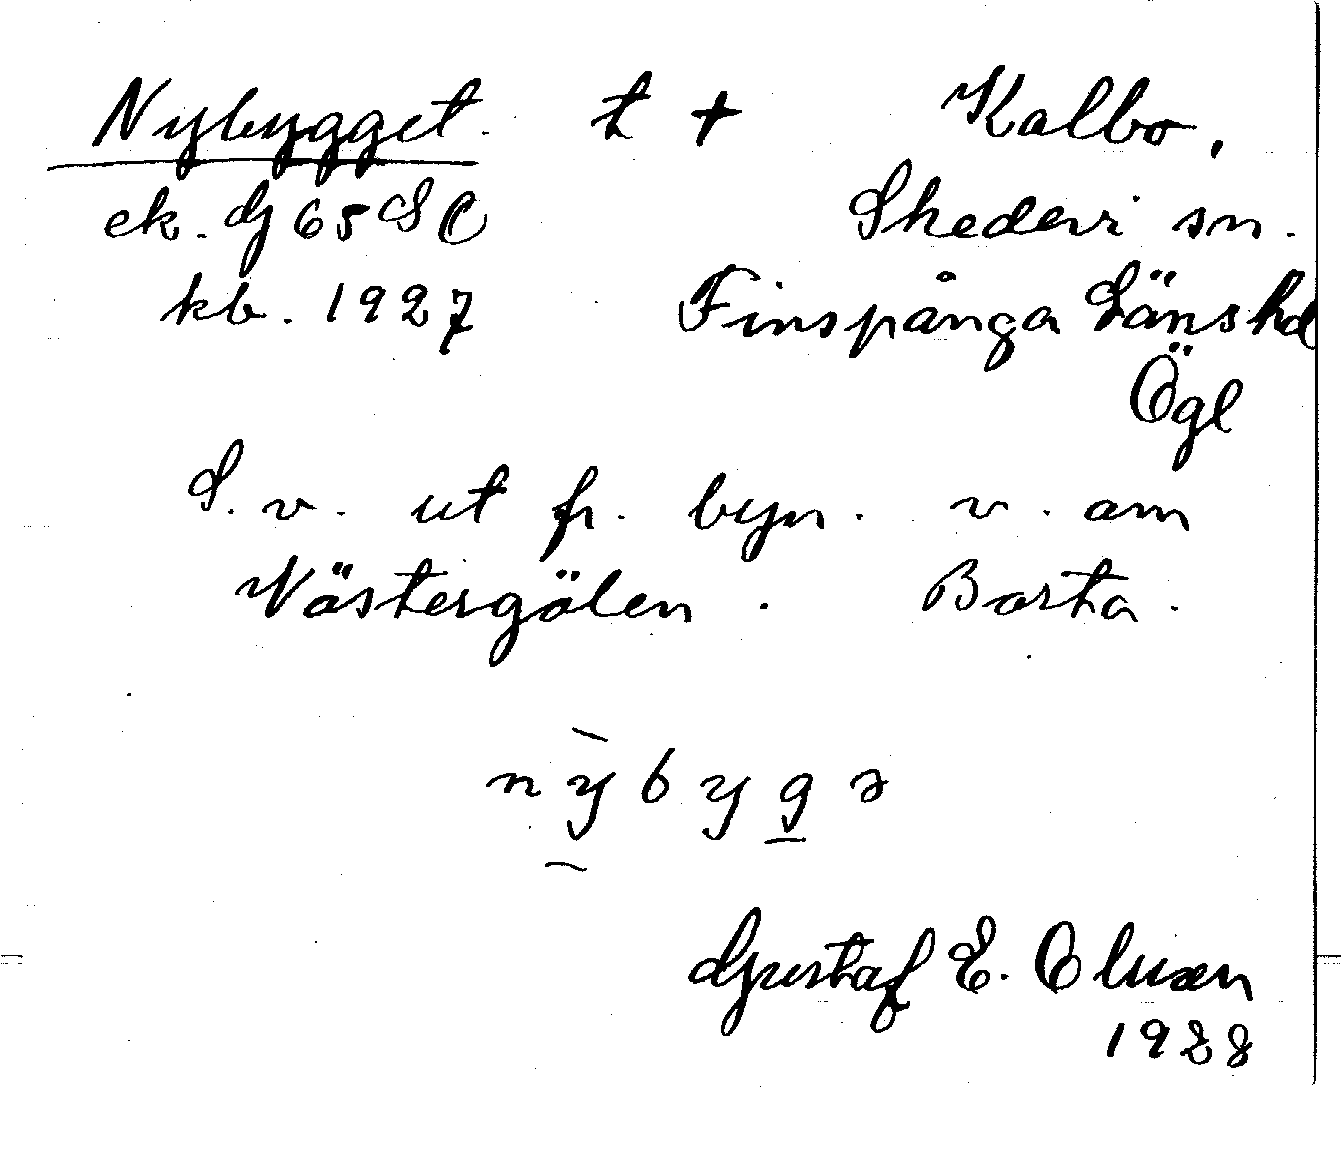 Nybygget. t + Kalbo,
ek. G 65 S C Skedevi sn.
kb. 1927 Finspånga Länshd
Ögl
S. v. ut fr. byn. v. om
Västergölen. Borta.
nybygə
Gustaf E. Oluxen
1928